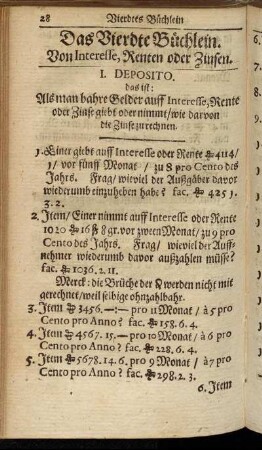 28 Vierdtes Büchlein
Das Vierdte Büchlein.
Von Interesse, Renten oder Zinsen.
I. DEPOSITO.
das ist:
Als man bahre Gelder auff Interesse, Rente
oder Zinse giebt oder nimmt / wie darvon
die Zinse zu rechnen.
1. Einer giebt auff Interesse oder Rente 4114/
1/ vor fünff Monat / zu 8 pro Cento des
Jahrs. Frag / wieviel der Außgäber davor
wiederumb einzuheben habe? fac. 425 1.
3. 2.
2. Item / Einer nimmt auff Interesse oder Rente
1020 16 ß 8 gr. vor zween Monat / zu 9 pro
Cento des Jahrs. Frag / wieviel der Auff-
nehmer wiederumb davor außzahlen müsse?
fac. 1036. 2. 11.
Merck: die Brüche der werden nicht mit
gerechnet / weil selbige ohnzahlbahr.
3. Item 3456. —:— pro 11 Monat / à 5 pro
Cento pro Anno? fac. 158. 6. 4.
4. Item 4567. 15. — pro 10 Monat / à 6 pro
Cento pro Anno? fac. 228. 6. 4.
5. Item 5678. 14. 6. pro 9 Monat / à 7 pro
Cento pro Anno? fac. 298. 2. 3.
6. Item